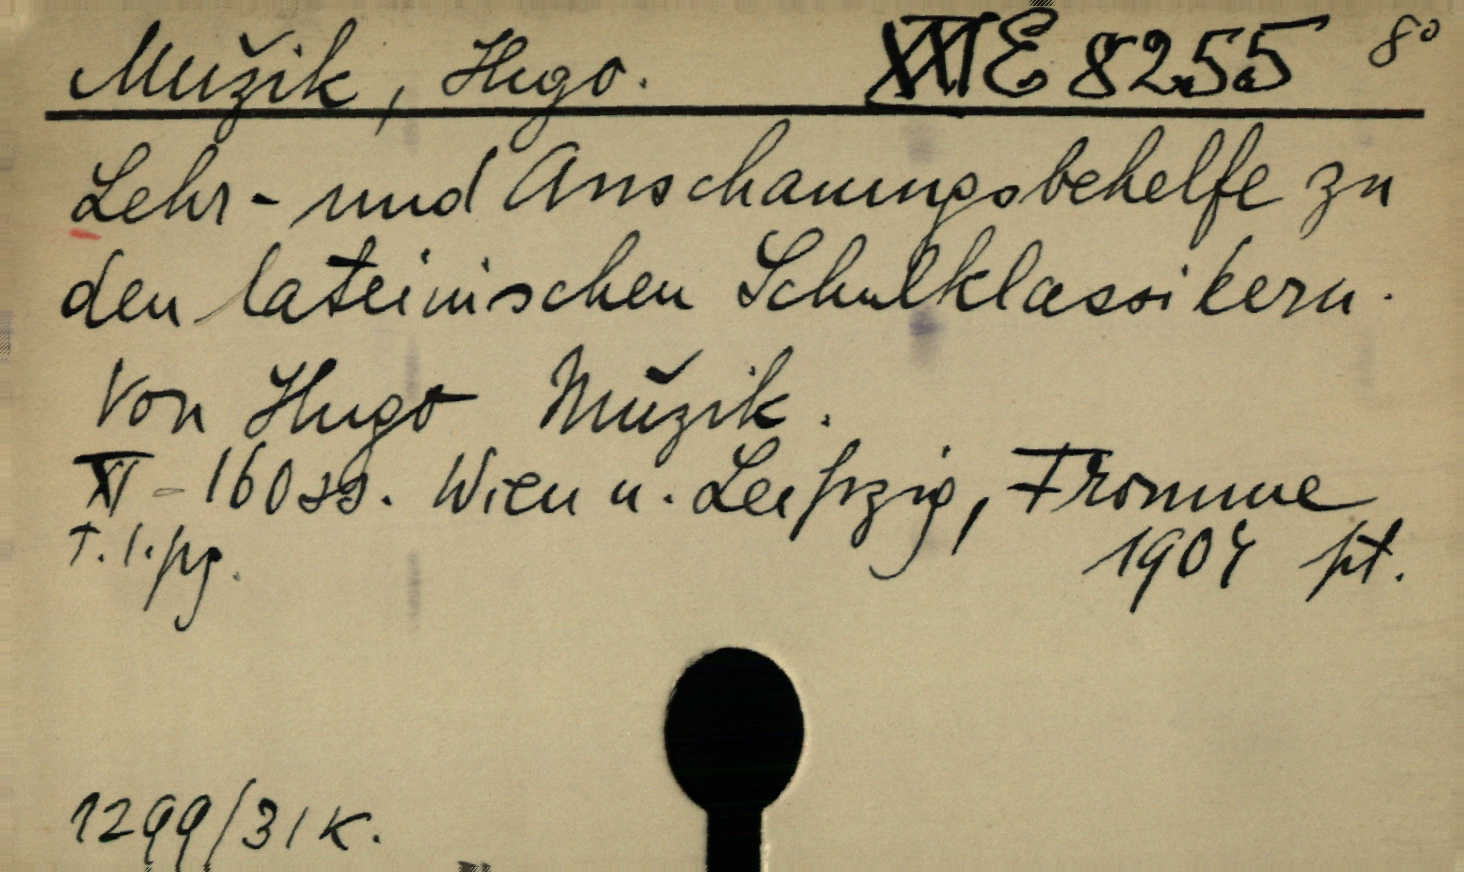 Mužik, Hugo. XXI E 8255 8°
Lehr- und Anschauungsbehelfe zu
den lateinischen Schulklassikern.
Von Hugo Mužik.
XI - 160 ss. Wien u. Leipzig, Fromme
T. 1. pg. 1904 pt.
1299/31 K.